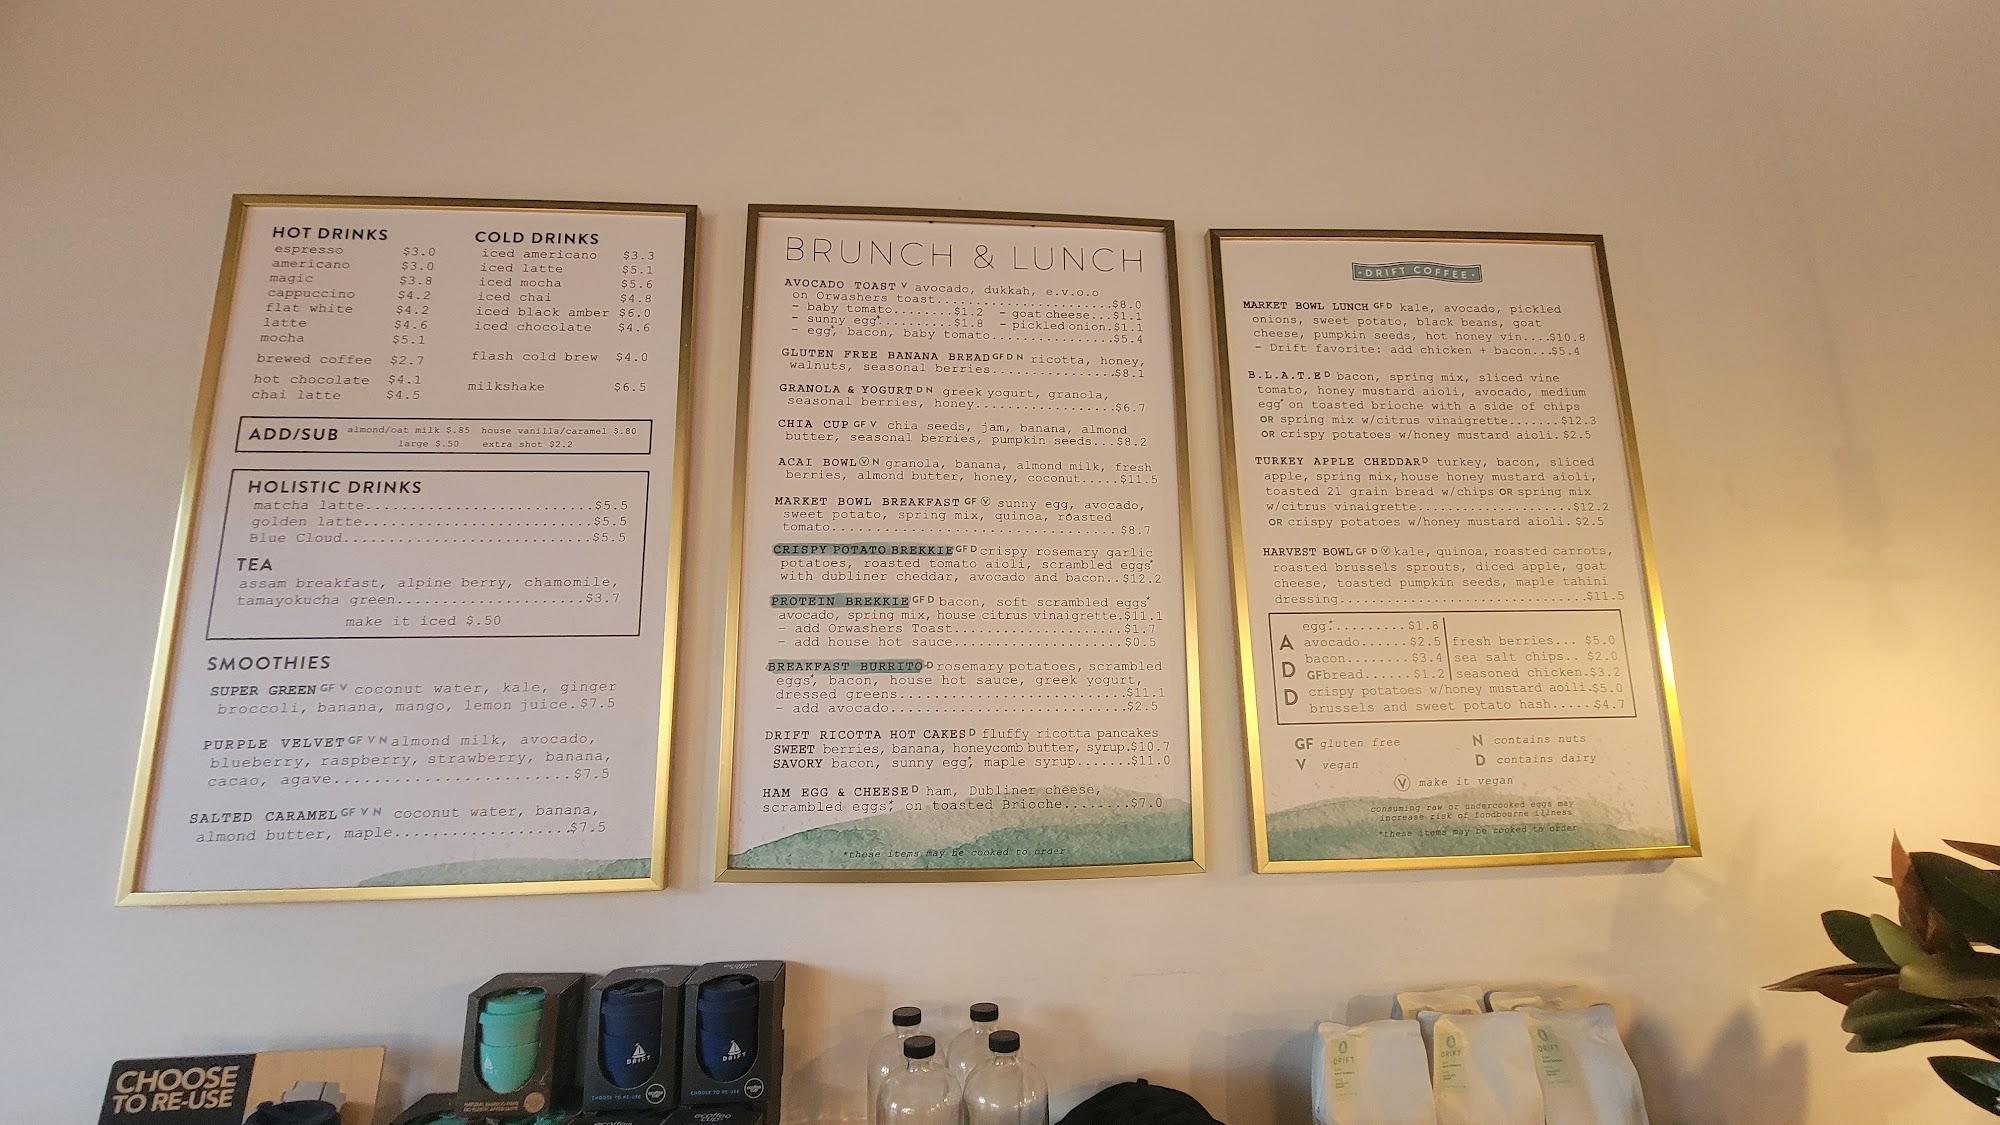 HOT DRINKS
espresso $3.0
americano $3.0
magic $3.8
cappuccino $4.2
flat white $4.2
latte $4.6
mocha $5.1
brewed coffee $2.7
hot chocolate $4.1
chai latte $4.5
COLD DRINKS
iced americano $3.3
iced latte $5.1
iced mocha $5.6
iced chai $4.8
iced black amber $6.0
iced chocolate $4.6
flash cold brew $4.0
milkshake $6.5
ADD/SUB almond/oat milk $.85 house vanilla/caramel $.80
large $.50 extra shot $2.2
HOLISTIC DRINKS
matcha latte............................$5.5
golden latte............................$5.5
Blue Cloud..............................$5.5
TEA
assam breakfast, alpine berry, chamomile,
tamayokucha green.......................$3.7
make it iced $.50
SMOOTHIES
SUPER GREEN GF V coconut water, kale, ginger
broccoli, banana, mango, lemon juice.$7.5
PURPLE VELVET GF V N almond milk, avocado,
blueberry, raspberry, strawberry, banana,
cacao, agave........................$7.5
SALTED CARAMEL GF V N coconut water, banana,
almond butter, maple..................$7.5
BRUNCH & LUNCH
AVOCADO TOAST V avocado, dukkah, e.v.o.o
on Orwashers toast.......................$8.0
- baby tomato........$1.2 - goat cheese...$1.1
- sunny egg*.........$1.8 - pickled onion.$1.1
- egg*, bacon, baby tomato...............$5.4
GLUTEN FREE BANANA BREAD GF D N ricotta, honey,
walnuts, seasonal berries................$8.1
GRANOLA & YOGURT D N greek yogurt, granola,
seasonal berries, honey..................$6.7
CHIA CUP GF V chia seeds, jam, banana, almond
butter, seasonal berries, pumpkin seeds...$8.2
ACAI BOWL Ⓥ N granola, banana, almond milk, fresh
berries, almond butter, honey, coconut.....$11.5
MARKET BOWL BREAKFAST GF Ⓥ sunny egg, avocado,
sweet potato, spring mix, quinoa, roasted
tomato.....................................$8.7
CRISPY POTATO BREKKIE GF D crispy rosemary garlic
potatoes, roasted tomato aioli, scrambled eggs*
with dubliner cheddar, avocado and bacon..$12.2
PROTEIN BREKKIE GF D bacon, soft scrambled eggs*
avocado, spring mix, house citrus vinaigrette.$11.1
- add Orwashers Toast......................$1.7
- add house hot sauce......................$0.5
BREAKFAST BURRITO D rosemary potatoes, scrambled
eggs*, bacon, house hot sauce, greek yogurt,
dressed greens.............................$11.1
- add avocado..............................$2.5
DRIFT RICOTTA HOT CAKES D fluffy ricotta pancakes
SWEET berries, banana, honeycomb butter, syrup.$10.7
SAVORY bacon, sunny egg*, maple syrup.......$11.0
HAM EGG & CHEESE D ham, Dubliner cheese,
scrambled eggs*, on toasted Brioche........$7.0
*these items may be cooked to order
DRIFT COFFEE
MARKET BOWL LUNCH GF D kale, avocado, pickled
onions, sweet potato, black beans, goat
cheese, pumpkin seeds, hot honey vin....$10.8
- Drift favorite: add chicken + bacon...$5.4
B.L.A.T.E D bacon, spring mix, sliced vine
tomato, honey mustard aioli, avocado, medium
egg* on toasted brioche with a side of chips
OR spring mix w/citrus vinaigrette.......$12.3
OR crispy potatoes w/honey mustard aioli. $2.5
TURKEY APPLE CHEDDAR D turkey, bacon, sliced
apple, spring mix, house honey mustard aioli,
toasted 21 grain bread w/chips OR spring mix
w/citrus vinaigrette.....................$12.2
OR crispy potatoes w/honey mustard aioli. $2.5
HARVEST BOWL GF D Ⓥ kale, quinoa, roasted carrots,
roasted brussels sprouts, diced apple, goat
cheese, toasted pumpkin seeds, maple tahini
dressing.................................$11.5
ADD
egg*.........$1.8
avocado......$2.5 fresh berries... $5.0
bacon........$3.4 sea salt chips.. $2.0
GF bread.....$1.2 seasoned chicken.$3.2
crispy potatoes w/honey mustard aoili.$5.0
brussels and sweet potato hash.....$4.7
GF gluten free N contains nuts
V vegan D contains dairy
Ⓥ make it vegan
consuming raw or undercooked eggs may
increase risk of foodbourne illness
*these items may be cooked to order
CHOOSE
TO RE-USE
DRIFT
CHOOSE TO RE-USE
ecoffee
cup
DRIFT
CHOOSE TO RE-USE
ecoffee
cup
DRIFT
DRIFT
DRIFT